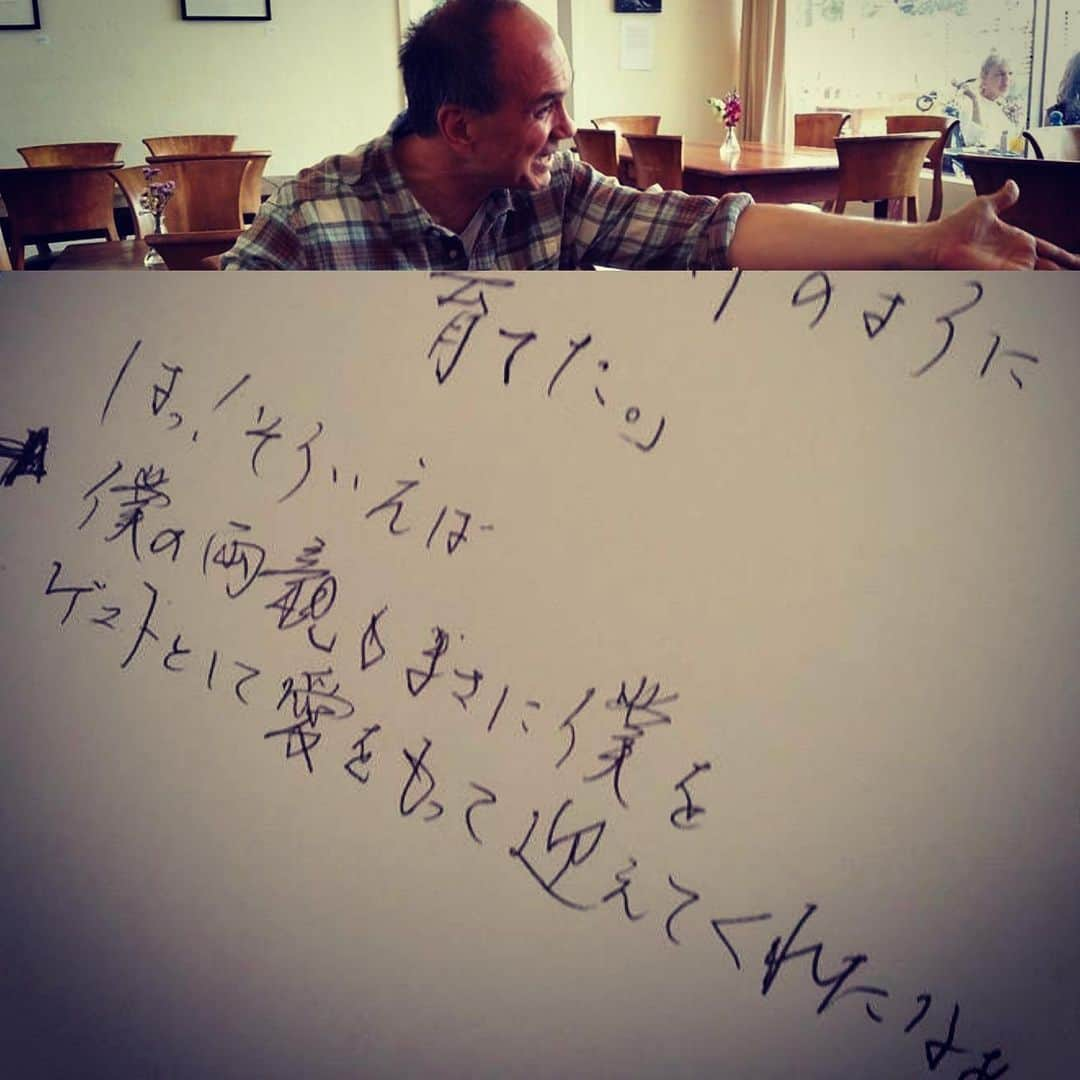 のように
育てた。」
はっ!そういえば
僕の両親もまさに僕を
ゲストとして愛をもって迎えてくれたなぁ